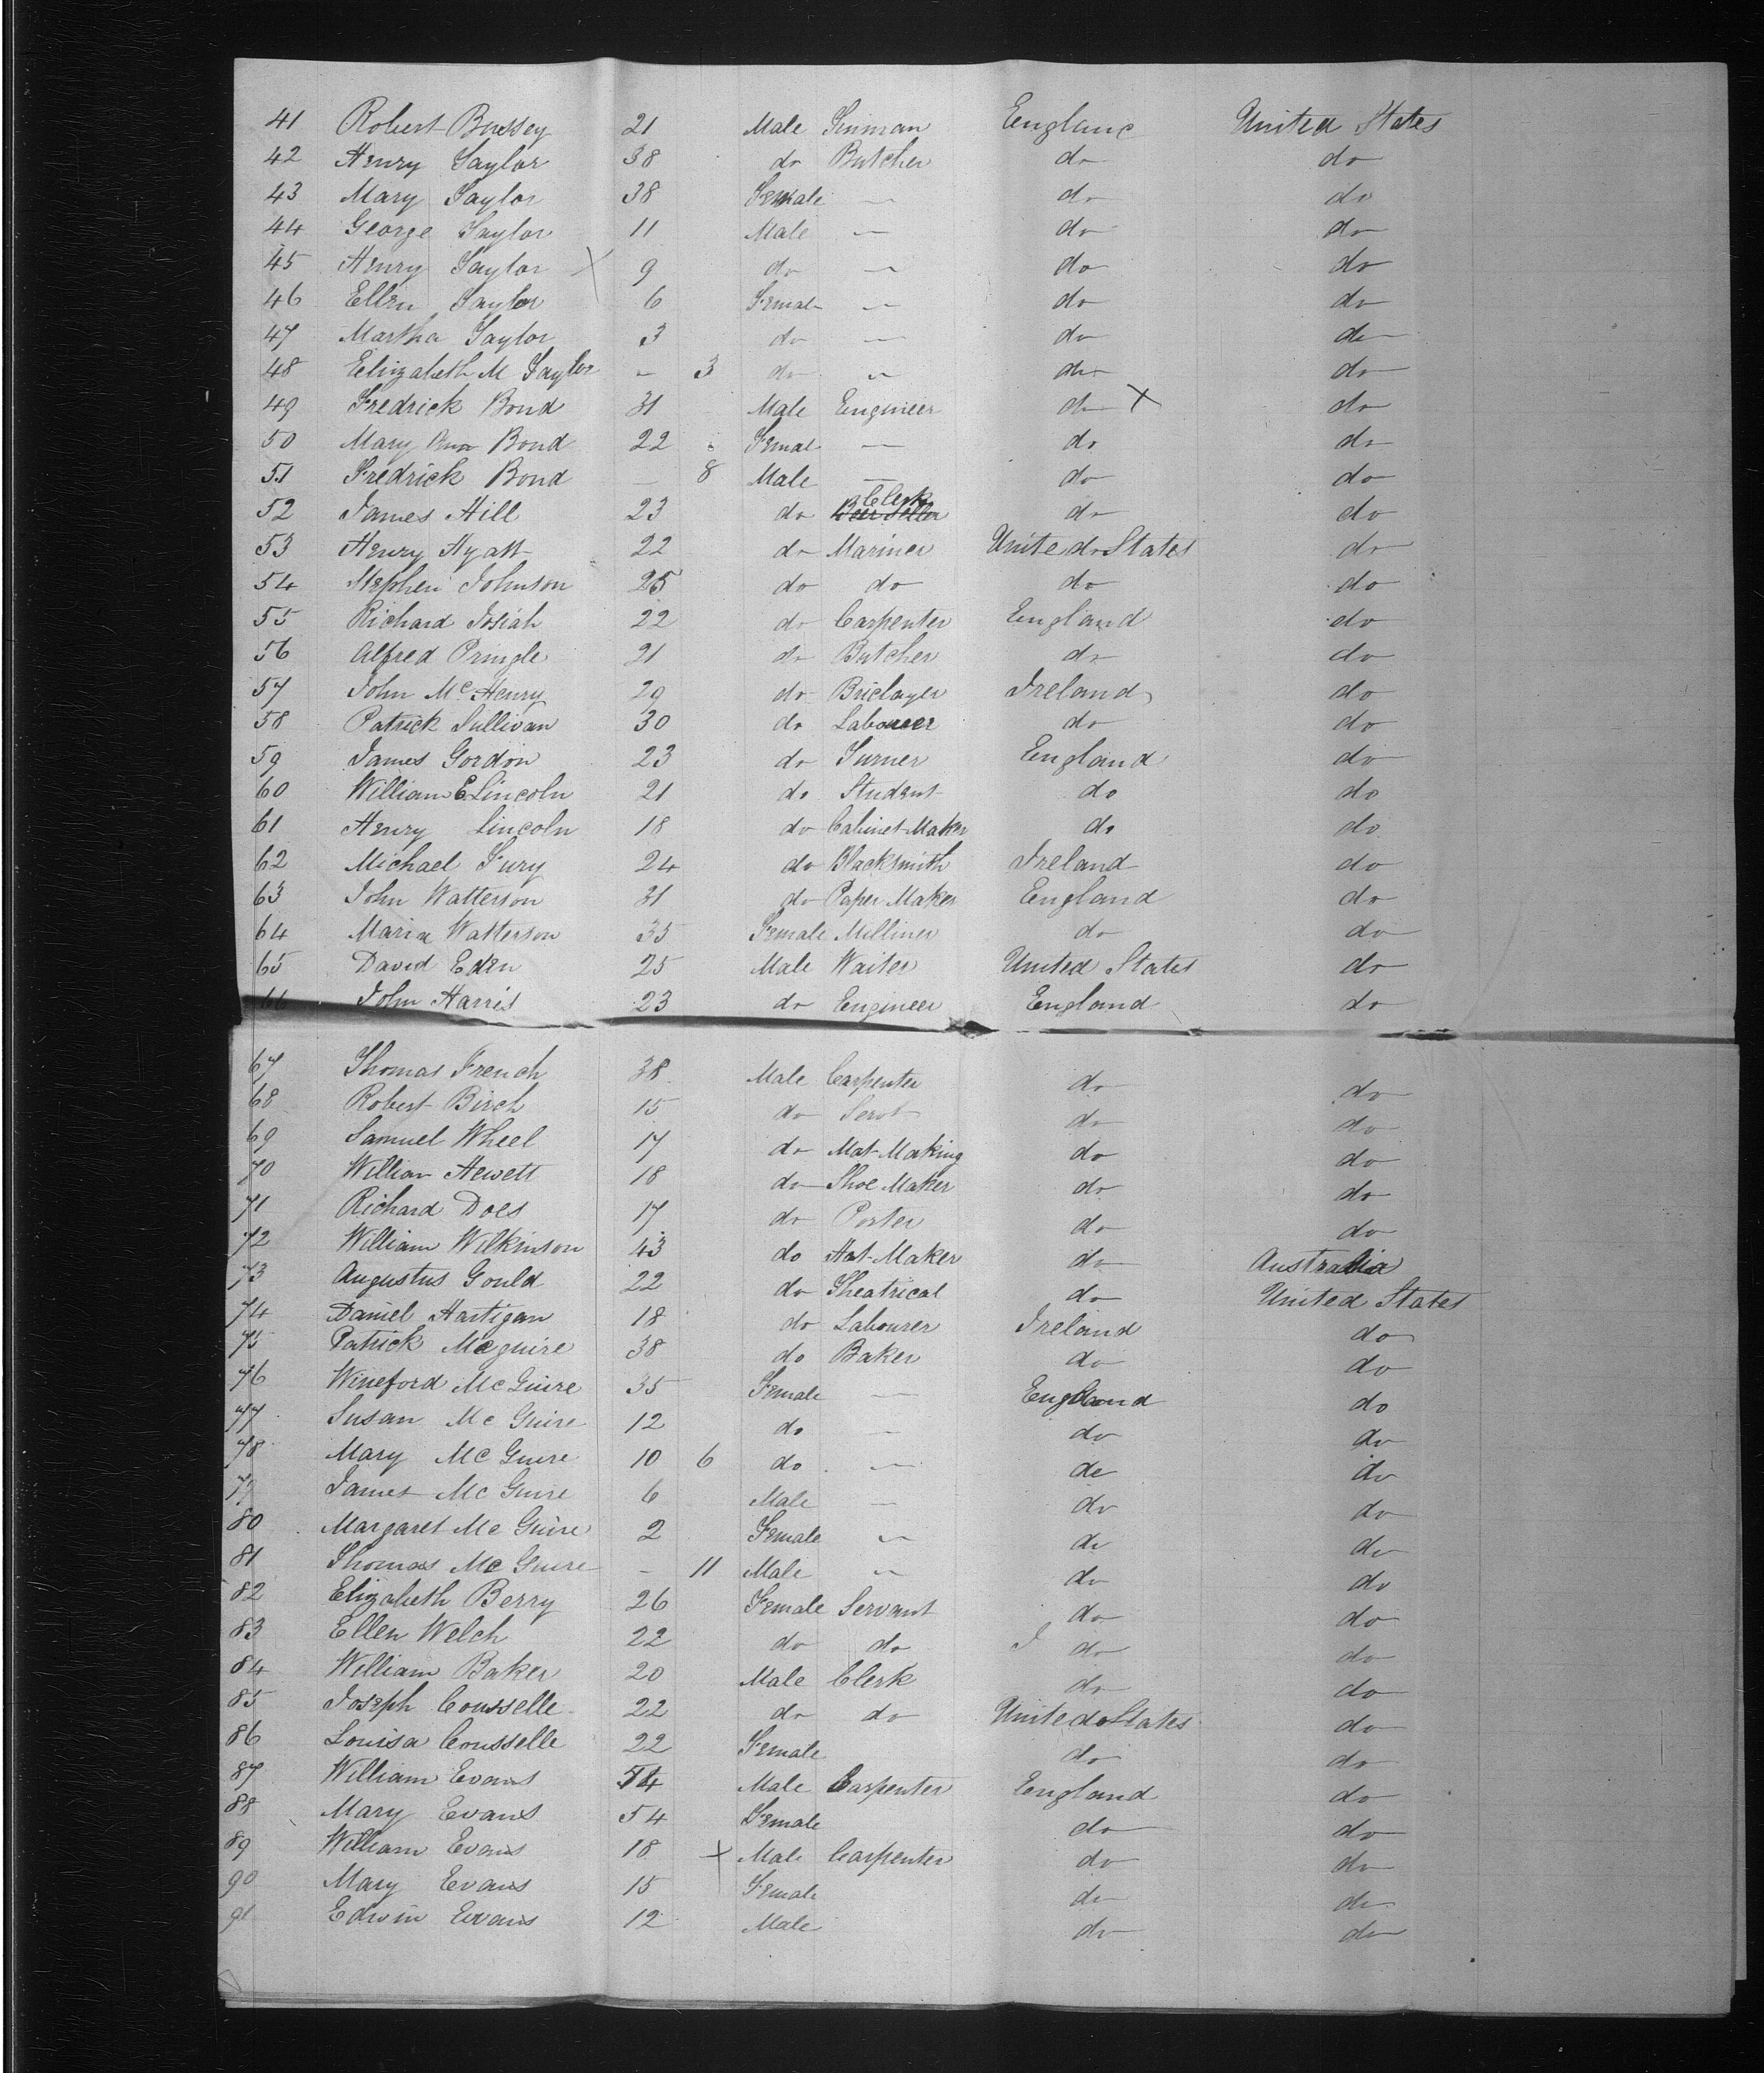 41 Robert Bussey 21 Male Tinman England United States
42 Henry Taylor 38 do Butcher do do
43 Mary Taylor 38 Female — do do
44 George Taylor 11 Male — do do
45 Henry Taylor X 9 do — do do
46 Ellen Taylor 6 Femal — do do
47 Martha Taylor 3 do — do do
48 Elizabeth M Taylor – 3 do — do do
49 Fredrick Bond 31 Male Engineer do X do
50 Mary Ann Bond 22 Femal — do do
51 Fredrick Bond — 8 Male — do do
52 James Hill 23 do Clerk do do
53 Henry Hyatt 22 do Mariner United States do
54 Stephen Johnson 25 do do do do
55 Richard Josiah 22 do Carpenter England do
56 Alfred Pringle 21 do Butcher do do
57 John McHenry 29 do Briclayer Ireland do
58 Patrick Sullivan 30 do Labourer do do
59 James Gordon 23 do Turner England do
60 William E Lincoln 21 do Student do do
61 Henry Lincoln 18 do Cabinet Maker do do
62 Michael Fury 24 do Blacksmith Ireland do
63 John Watterson 31 do Paper Maker England do
64 Maria Watterson 35 Female Milliner do do
65 David Eden 25 Male Waiter United States do
John Harris 23 do Engineer England do
67 Thomas French 38 Male Carpenter do do
68 Robert Birch 15 do Servt do do
69 Samuel Wheel 17 do Mat-Making do do
70 William Hewett 18 do Shoe Maker do do
71 Richard Does 17 do Porter do do
72 William Wilkinson 43 do Hat-Maker do Australia
73 Augustus Gould 22 do Theatrical do United States
74 Daniel Hartigan 18 do Labourer Ireland do
75 Patrick Mcguire 38 do Baker do do
76 Wineford McGuire 35 Female — England do
77 Susan McGuire 12 do — do do
78 Mary McGuire 10 6 do — do do
79 James McGuire 6 Male — do do
80 Margaret McGuire 2 Female — do do
81 Thomas McGuire – 11 Male — do do
82 Elizabeth Berry 26 Female Servant do do
83 Ellen Welch 22 do do I do do
84 William Baker 20 Male Clerk do do
85 Joseph Cousselle 22 do do United States do
86 Louisa Cousselle 22 Female do do
87 William Evans 54 Male Carpenter England do
88 Mary Evans 54 Female do do
89 William Evans 18 X Male Carpenter do do
90 Mary Evans 15 Female do do
91 Edwin Evans 12 Male do do